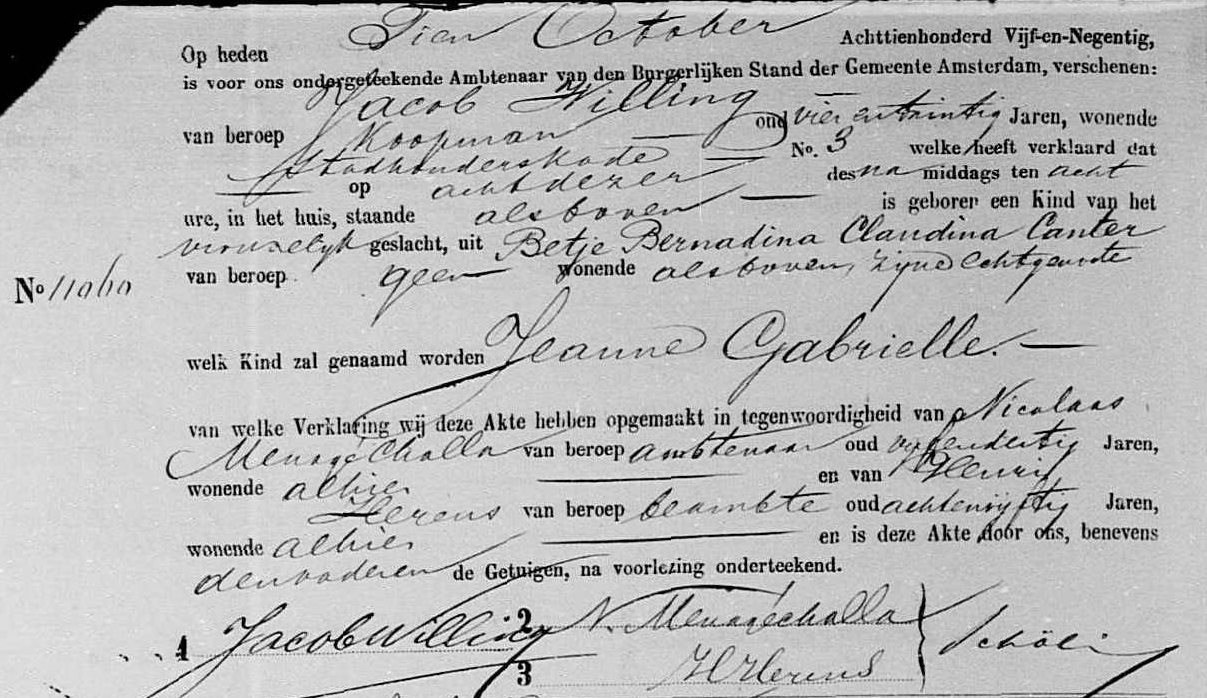 Op heden Tien October Achttienhonderd Vijf-en-Negentig,
is voor ons ondergeteekende Ambtenaar van den Burgerlijken Stand der Gemeente Amsterdam, verschenen:
Jacob Willing
van beroep Koopman oud vier en twintig Jaren, wonende
Stadhouderskade No. 3 welke heeft verklaard dat
op acht dezer des na middags ten acht
ure, in het huis, staande als boven is geboren een Kind van het
vrouwelijk geslacht, uit Betje Bernadina Claudina Canter
van beroep geen wonende als boven, zijne echtgenoote
No
welk Kind zal genaamd worden Jeanne Gabrielle.
van welke Verklaring wij deze Akte hebben opgemaakt in tegenwoordigheid van Nicolaas
Menagé Challa van beroep ambtenaar oud vijfendertig Jaren,
wonende alhier en van Henri
Herens van beroep beambte oud achtenvijftig Jaren,
wonende alhier en is deze Akte door ons, benevens
den vader en de Getuigen, na voorlezing onderteekend.
1 Jacob Willing 2 N. Menagé Challa
3 H Herens